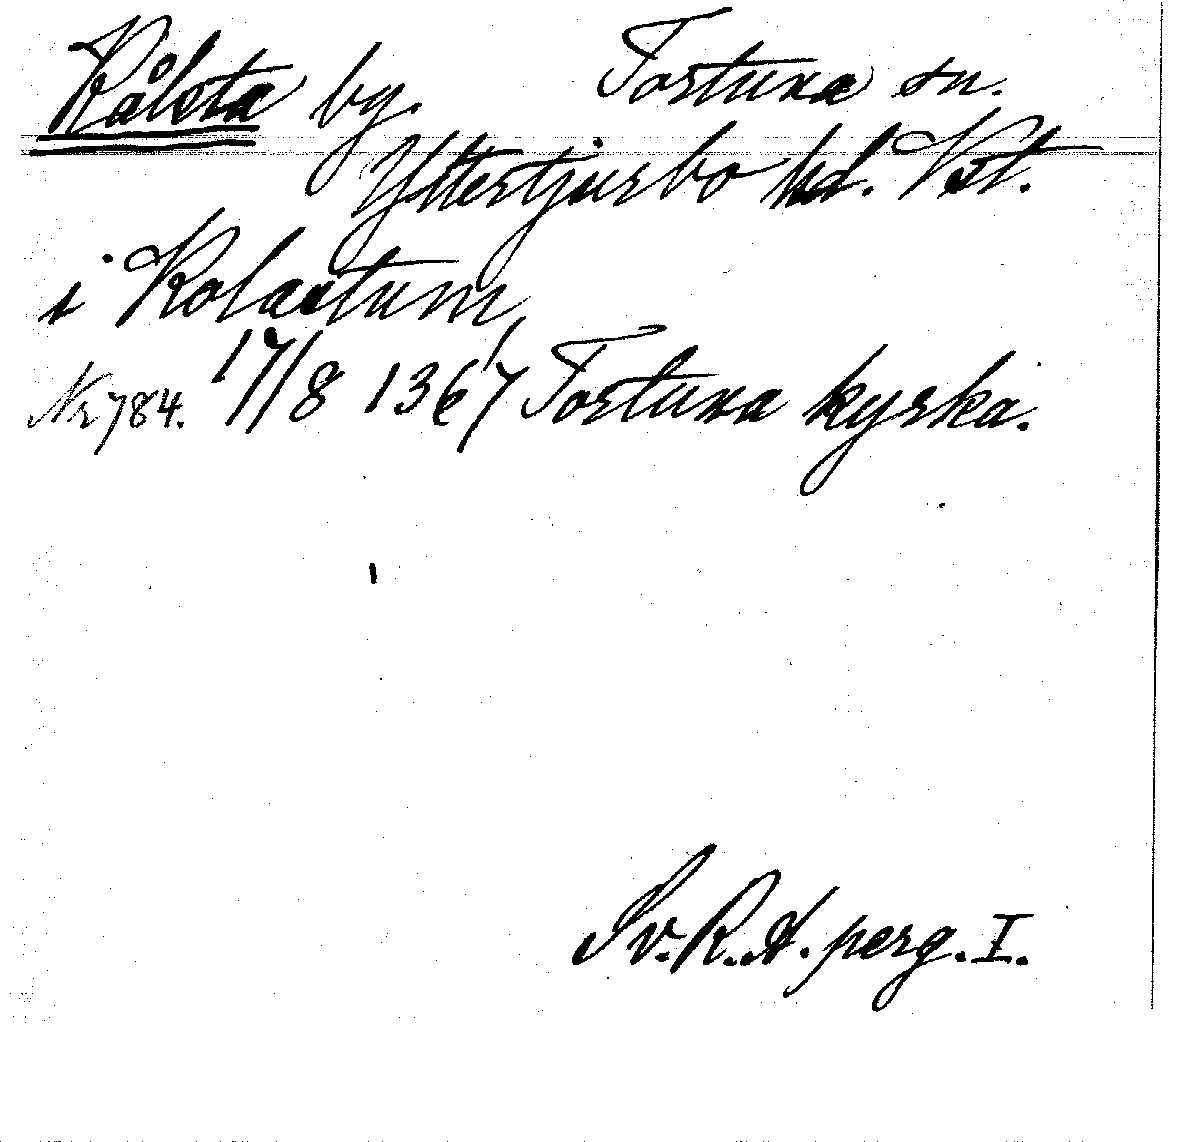 Kålsta by. Tortuna sn.
Yttertjurbo hd. Vst.
i Kolastum,
Nr 784. 17/8 1367 Tortuna kyrka.
Sv. R. A. perg. I.